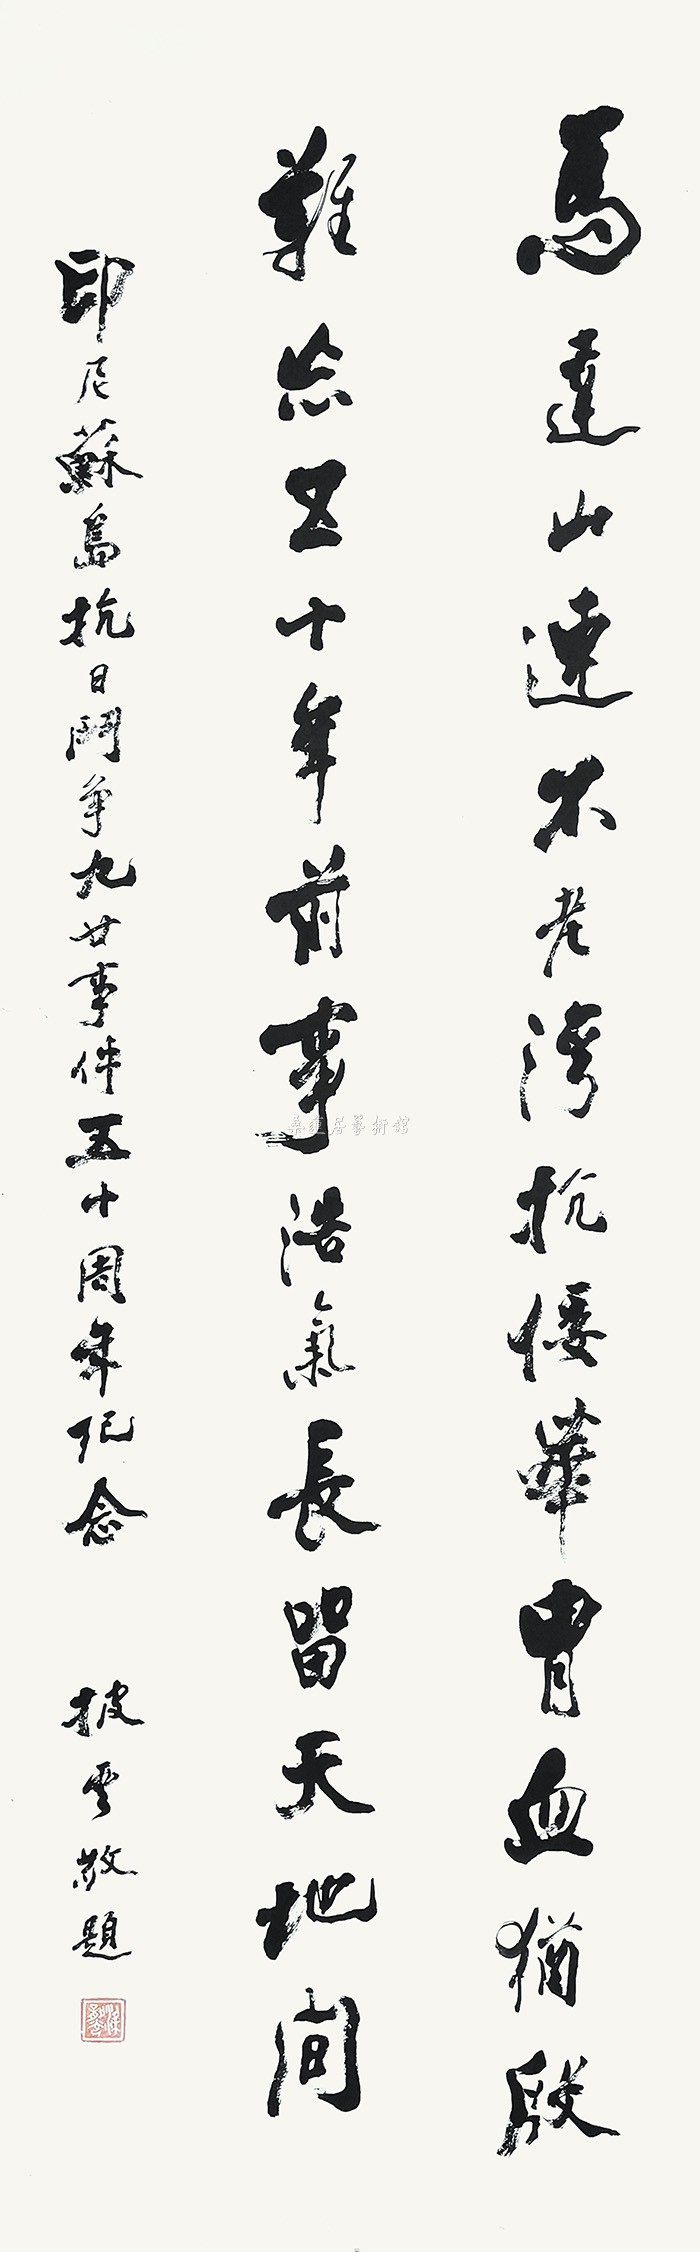 馬達山連不老灣抗倭華胄血猶殷
難忘五十年前事浩氣長留天地間
印尼蘇島抗日鬥爭九廿事件五十周年紀念 披雲敬題